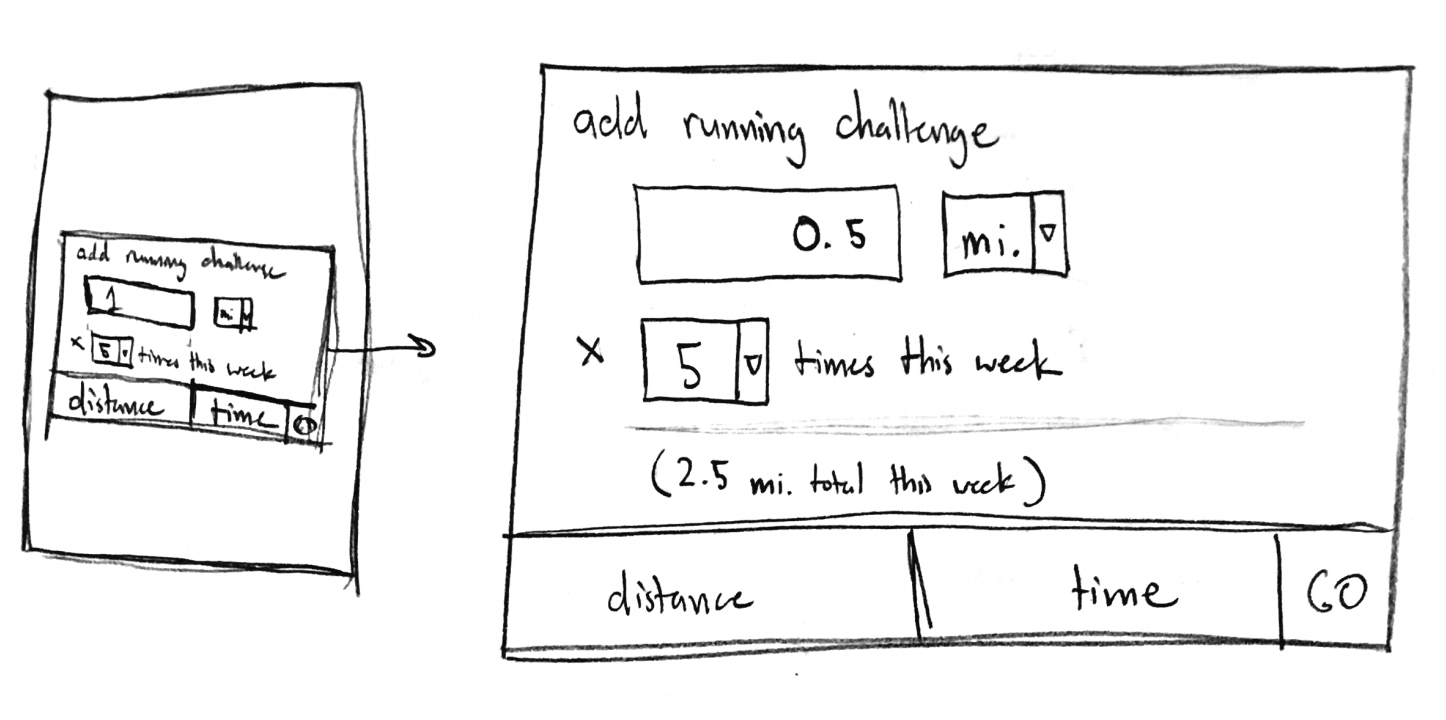 add running challenge
1 mi.
x 5 times this week
distance time GO
add running challenge
0.5 mi.
x 5 times this week
(2.5 mi. total this week)
distance time GO